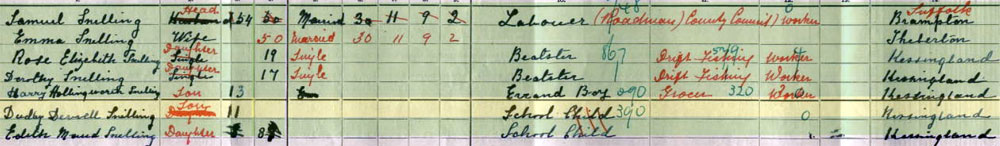 Samuel Snelling Husband Head 54 50 Married 30 11 9 2 Labourer (Roadman) County Council Worker Suffolk Brampton
Emma Snelling Wife 50 Married 30 11 9 2 Theberton
Rose Elizabeth Snelling Single Daughter 19 Single Beatster 867 Drift Fishing 549 Worker Kessingland
Dorothy Snelling Single Daughter 17 Single Beatster Drift Fishing Worker Kessingland
Harry Hollingworth Snelling Son 13 Errand Boy 290 Grocer 320 Worker Kessingland
Dudley Snelling Daughter Son 11 School Child 390 0 Kessingland
Edith Maud Snelling Daughter 8 School Child Kessingland